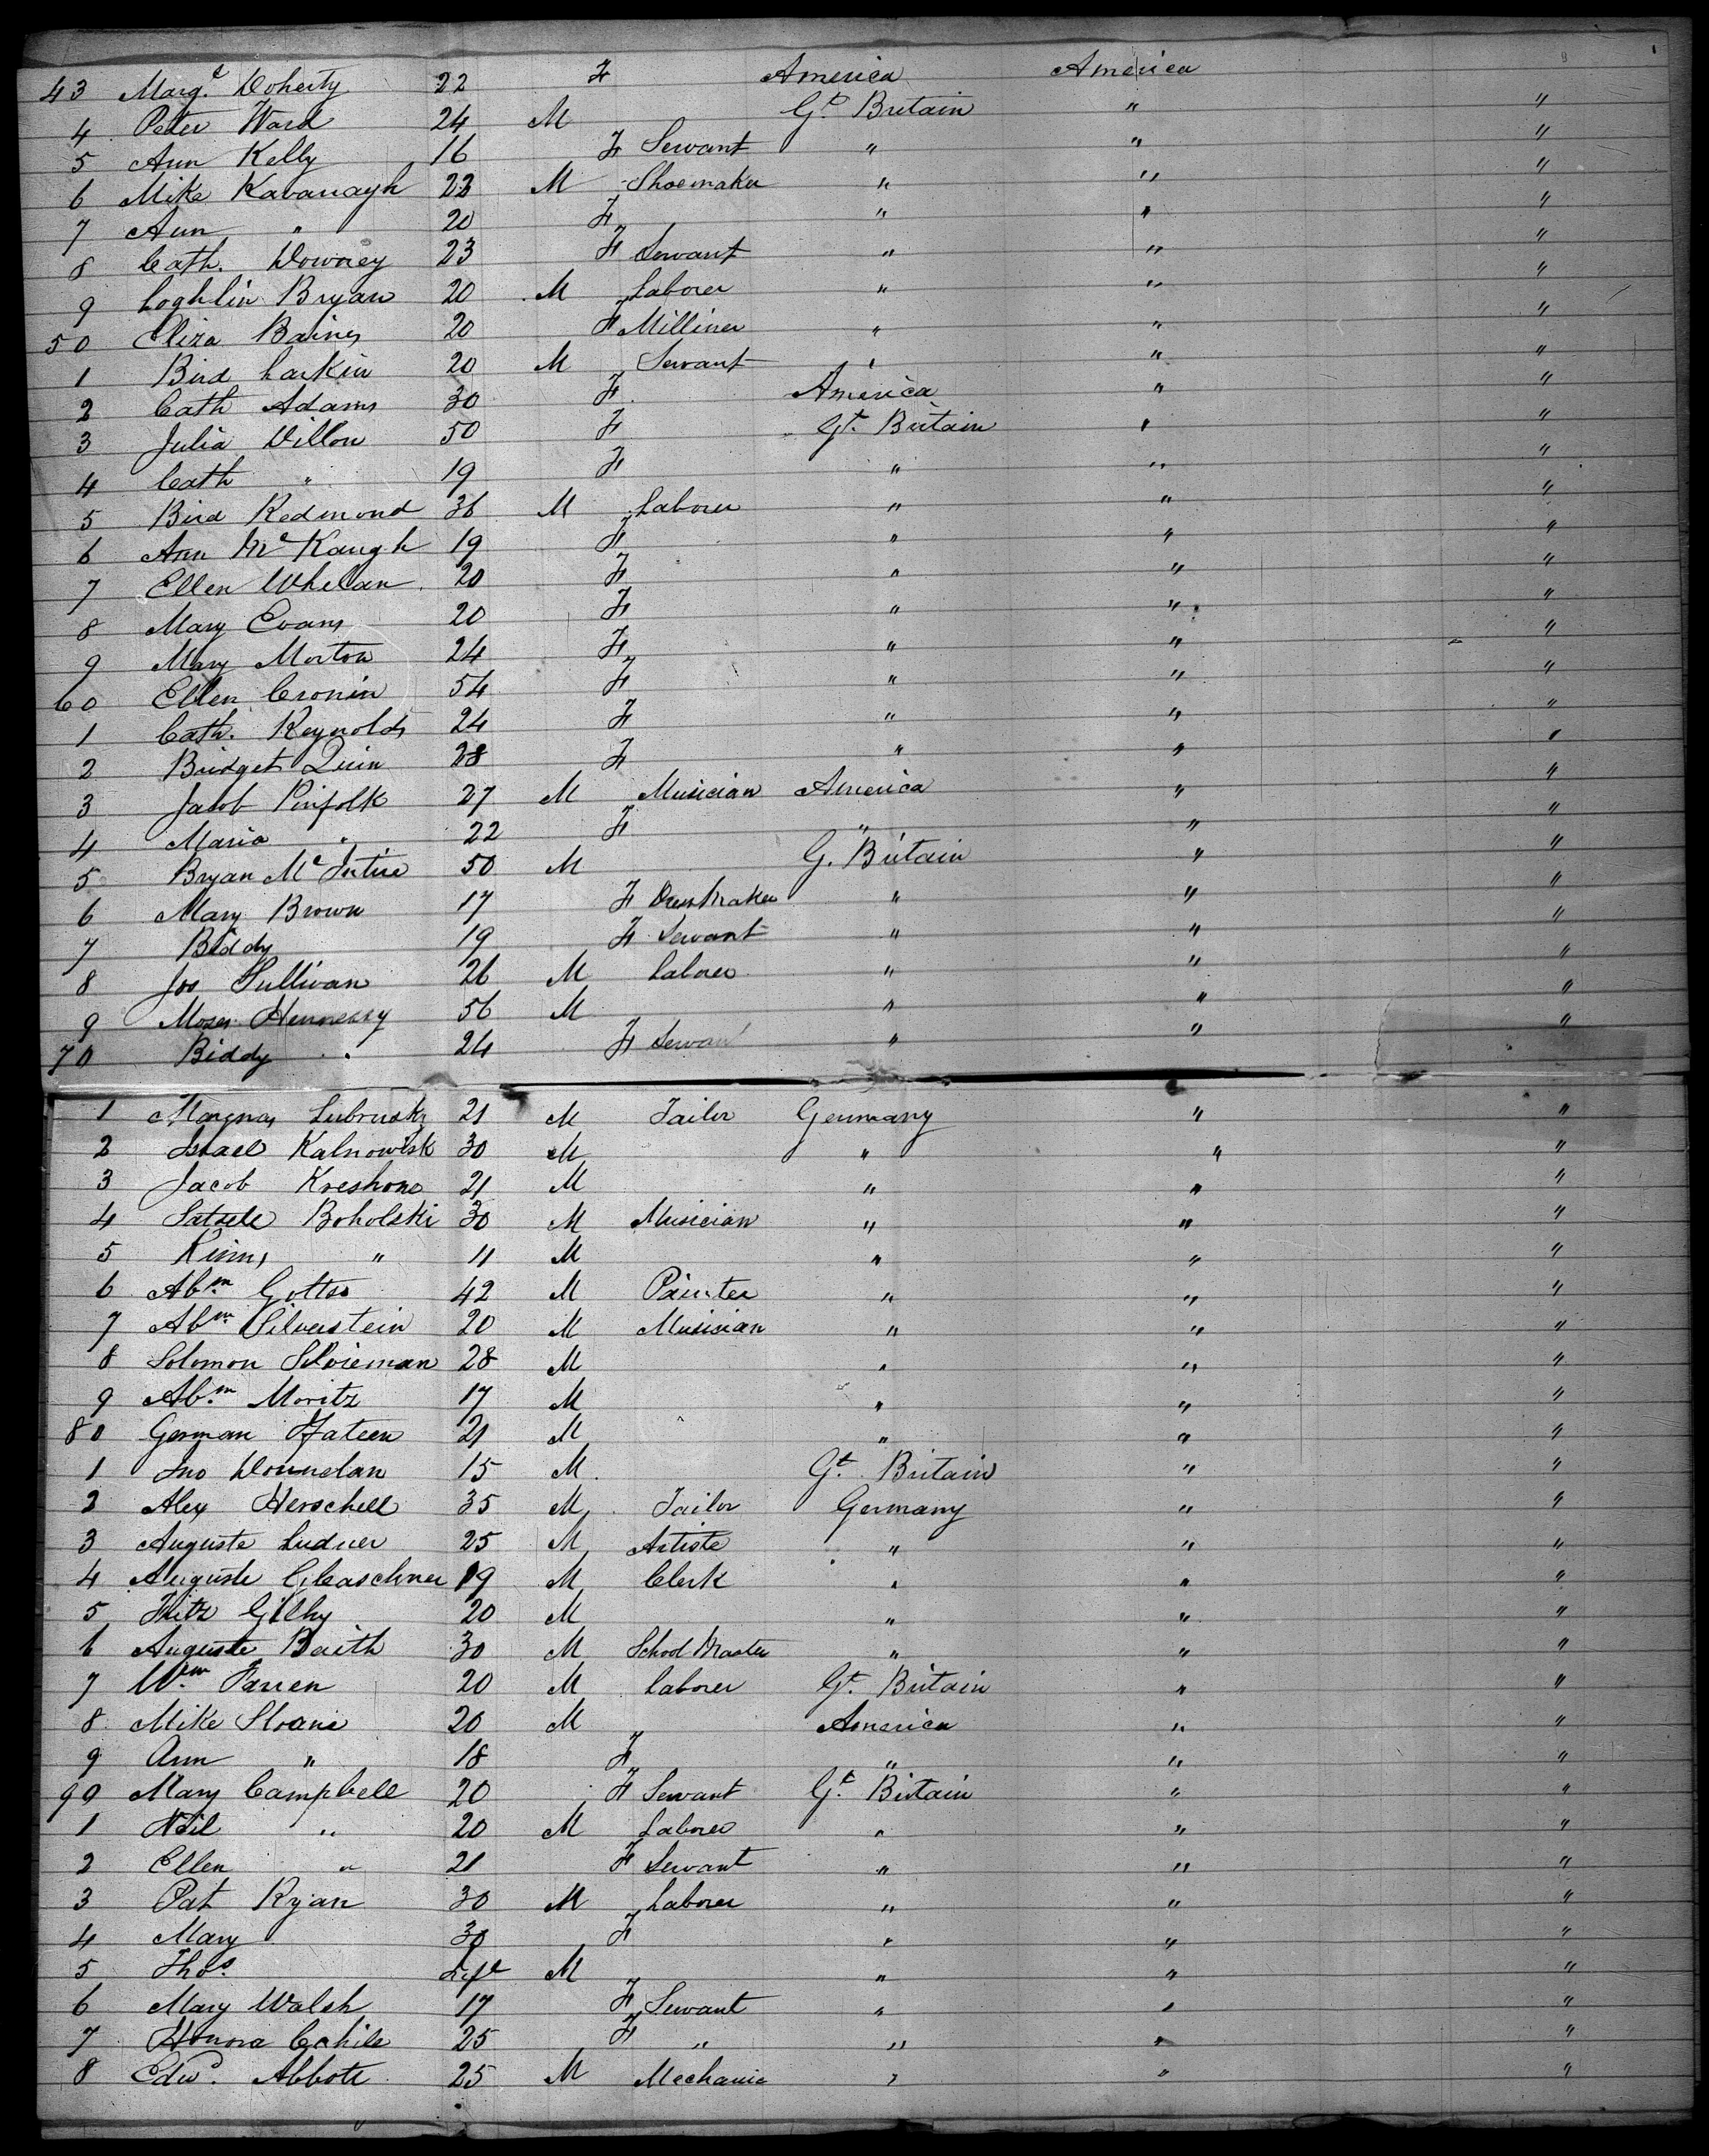 43 Marg.t Doherty 22 F America America
4 Peter Ward 24 M Gt. Britain " "
5 Ann Kelly 16 F Servant " " "
6 Mike Kavanagh 23 M Shoemaker " " "
7 Ann " 20 F " " "
8 Cath. Downey 23 F Servant " " "
9 Loghlin Bryan 20 M Laborer " " "
50 Eliza Baines 20 F Milliner " " "
1 Bird Larkin 20 M Servant " " "
2 Cath Adams 30 F America " "
3 Julia Dillon 50 F Gt. Britain " "
4 Cath " 19 F " " "
5 Bird Redmond 36 M Laborer " " "
6 Ann Mc Kaugh 19 F " " "
7 Ellen Whelan 20 F " " "
8 Mary Evans 20 F " " "
9 Mary Morton 24 F " " "
60 Ellen Cronin 54 F " " "
1 Cath. Reynolds 24 F " " "
2 Bridget Quin 28 F " " "
3 Jacob Pinfolk 27 M Musician America " "
4 Maria " 22 F " " "
5 Bryan Mc Intire 50 M G. Britain " "
6 Mary Brown 17 F Dress Maker " " "
7 Biddy 19 F Servant " " "
8 Jos Sullivan 26 M Laborer " " "
9 Moses Hennessy 56 M " " "
70 Biddy " 24 F Servan " " "
1 Magnas Lubrusky 21 M Tailor Germany " "
2 Israel Kalnowisk 30 M " " "
3 Jacob Kreshone 21 M " " "
4 Boholski 30 M Musician " " "
5 " 11 M " " "
6 Abm. Gottso 42 M Painter " " "
7 Abm. Silverstein 20 M Musician " " "
8 Solomon 28 M " " "
9 Abm. Moritz 17 M " " "
80 German 21 M " " "
1 Jno Dounelan 15 M Gt. Britain " "
2 Alex Herschell 35 M Tailor Germany " "
3 Auguste Ludner 25 M Artiste " " "
4 Auguste 19 M Clerk " " "
5 Fritz Gilhy 20 M " " "
6 Auguste Baith 30 M School Master " " "
7 Wm. Farren 20 M Laborer Gt. Britain " "
8 Mike Sloane 20 M " America " "
9 Ann " 18 F " " "
90 Mary Campbell 20 F Servant Gt. Britain " "
1 Neil " 20 M Laborer " " "
2 Ellen " 21 F Servant " " "
3 Pat Ryan 30 M Laborer " " "
4 Mary 30 F " " "
5 Thos. Inft M " " "
6 Mary Walsh 17 F Servant " " "
7 Honora Cahill 25 F " " " "
8 Edwd. Abbott 25 M Mechanic " " "